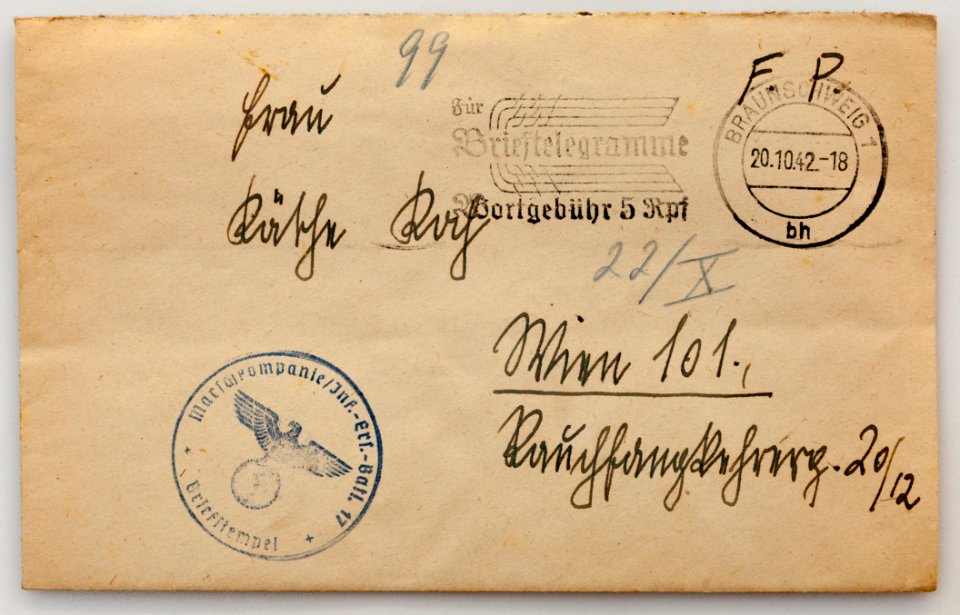 99
F. P.
Für
Brieftelegramme
Wortgebühr 5 Rpf
BRAUNSCHWEIG 1
20.10.42.-18
bh
Frau
Käthe Koch
22/X
Wien 101.,
Rauchfangkehrerg. 20/12
Marschkompanie/Inf.-Ers.-Batl. 17
Briefstempel